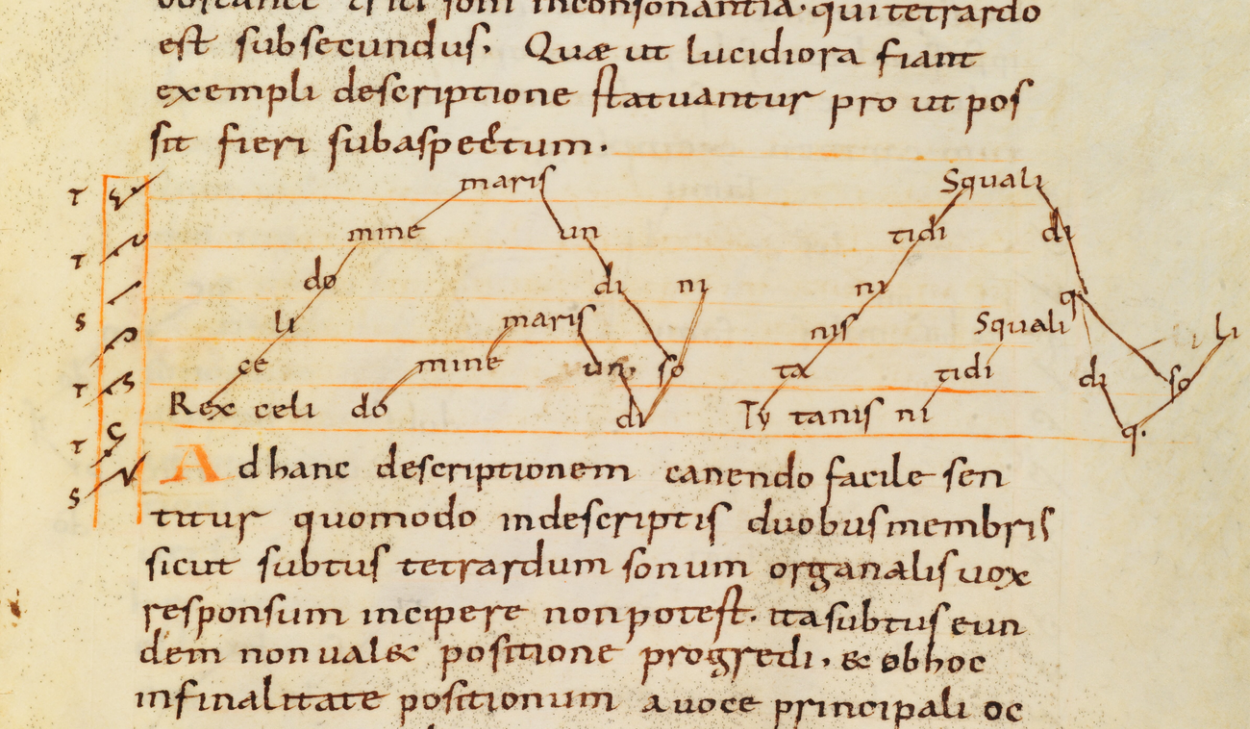 est subsecundus. Quæ ut lucidiora fiant
exempli descriptione statuantur pro ut pos
sit fieri subaspectum.
T maris Squali
mine un tidi di
T do di ni ni q
li maris nis Squali li
S ce mine un so ta tidi di so
T Rex celi do di Ty tanis ni q.
T
S
Ad hanc descriptionem canendo facile sen
titur quomodo indescriptis duobus membris
sicut subtus tetrardum sonum organalis uox
responsum incipere non potest. ita subtus eun
dem non ualet positione progredi. & ob hoc
infinalitate positionum a uoce principali oc